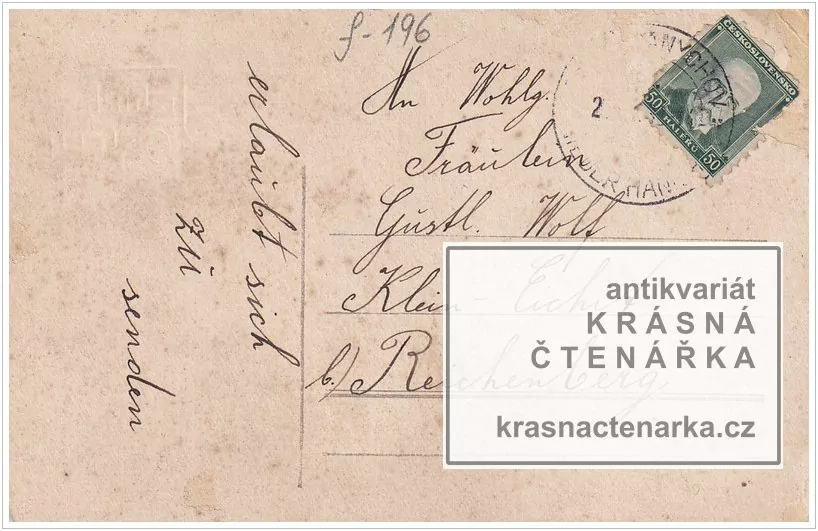 f-196
erlaubt sich
zu
senden
An Wohlg.
Fräulein
Gustl. Wolf
Klein-
b./ Reichenberg
ČESKOSLOVENSKO
50 HALÉRŮ 50
antikvariát
KRÁSNÁ
ČTENÁŘKA
krasnactenarka.cz